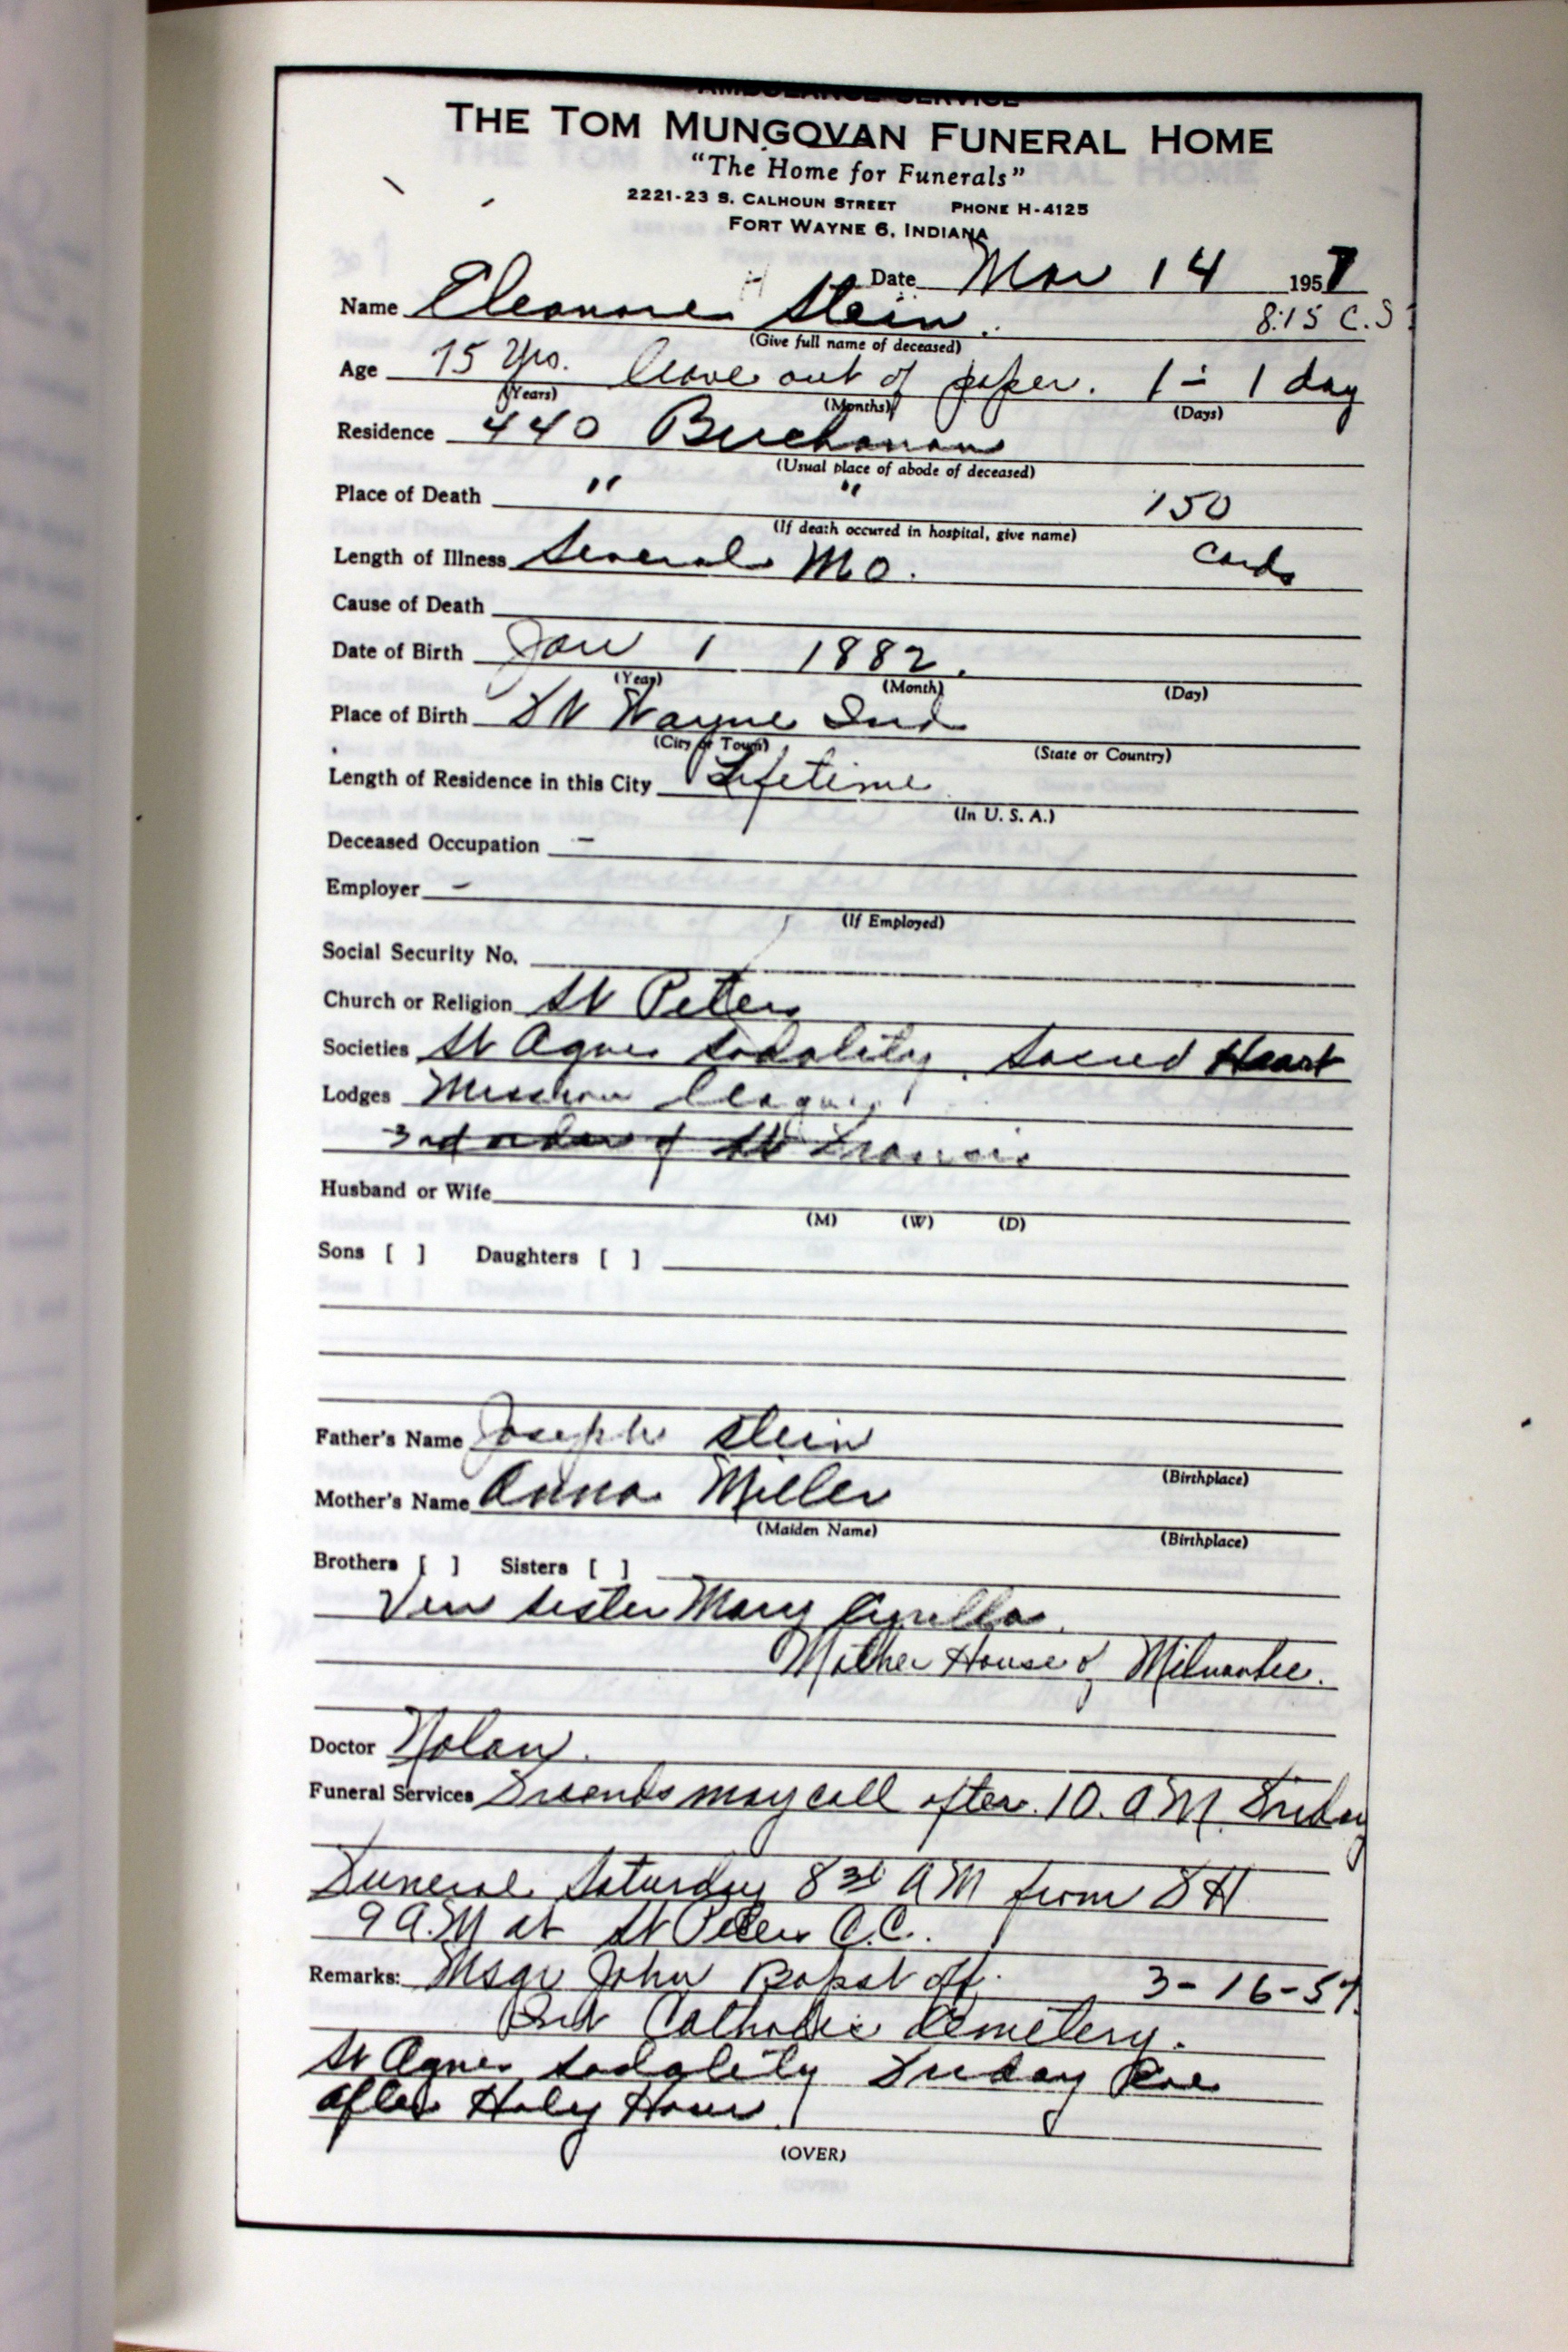 AMBULANCE SERVICE
THE TOM MUNGOVAN FUNERAL HOME
"The Home for Funerals"
2221-23 S. CALHOUN STREET PHONE H-4125
FORT WAYNE 6, INDIANA
Date Mar 14 1957
Name Eleanore Stein. 8:15 C.S.
(Give full name of deceased)
Age 75 Yrs. leave out of paper. 1 - 1 day
(Years) (Months) (Days)
Residence 440 Buchanan
(Usual place of abode of deceased)
Place of Death " " 150
(If death occured in hospital, give name)
Length of Illness Several Mo. Cards
Cause of Death
Date of Birth Jan 1 1882.
(Year) (Month) (Day)
Place of Birth Ft Wayne Ind
(City or Town) (State or Country)
Length of Residence in this City Lifetime
(In U. S. A.)
Deceased Occupation -
Employer -
(If Employed)
Social Security No.
Church or Religion St Peters
Societies St Agnes Sodality, Sacred Heart
Lodges Mission League
3rd order of St Francis
Husband or Wife
(M) (W) (D)
Sons [ ] Daughters [ ]
Father's Name Joseph Stein
(Birthplace)
Mother's Name Anna Miller
(Maiden Name) (Birthplace)
Brothers [ ] Sisters [ ]
Ven Sister Mary Cyrilla
Mother House of Milwaukee.
Doctor Nolan.
Funeral Services Friends may call after 10. A M. Friday
Funeral Saturday 8 30 A M from F H
9 A.M at St Peters C.C.
Remarks: Msgr John Bapst off. 3-16-57.
Catholic Cemetery.
St Agnes Sodality Friday
after Holy Hour
(OVER)